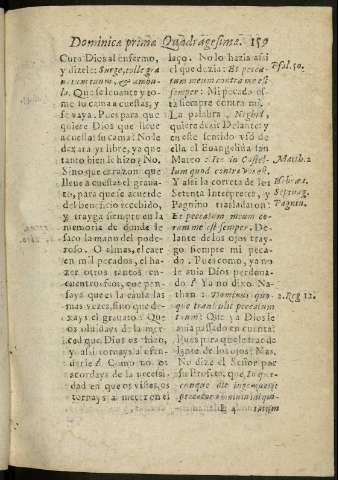 Dominica prima Quadragesima. 159
Cura Dios al enfermo,
y dizele: Surge, tolle gra
uatum tuum, & ambu-
la. Que se leuante y to-
me su cama a cuestas, y
se vaya. Pues para que
quiere Dios que lleue
acuestas su cama? No la
dexara yr libre, ya que
tanto bien le hizo? No.
Sino que es razon que
lleue a cuestas el grauato,
para que se acuerde
del beneficio recebido,
y trayga siempre en la
memoria de donde le
saco la mano del pode-
roso. O almas, el caer
en mil pecados, el ha-
zer otros tantos en-
cuentros
saya que es la causa las
mas vezes, sino que de-
xays el grauato? Que
os oluidays de la mer-
ced que Dios os hizo,
y assi tornays a ofen-
derle? Como no os
acordays de la necessi-
dad en que os vistes, os
tornays a meter en el
laço. No lo hazia assi
el que dezia: Et pecca-
tum meum contra me est
semper: Mi pecado es-
ta siempre contra mi.
La palabra, Neghdi,
quiere dezir Delante; y
en este sentido vso de
ella el Euangelista san
Mateo: Ite in Castel-
lum quod contra vos est.
Y assi la correta de los
Setenta Interpretes, y
Pagnino trasladaron:
Et peccatum meum co-
ram me est semper. De-
lante de los ojos tray-
go siempre mi peca-
do. Pues como, ya no
le auia Dios perdona-
do? Ya no dixo Na-
than: Dominus quo-
que transtulit peccatum
tuum? Que ya Dios le
auia passado en cuenta?
Pues para que le trae de
lante de los ojos? Mas,
No dize el Señor por
su Profeta, que, In quo-
cunque die ingemuerit
peccator omnium iniqui-
4
Psal. 50.
Matth. 2
Hebrae.
Septuag.
Pagnin.
2. Reg 12.